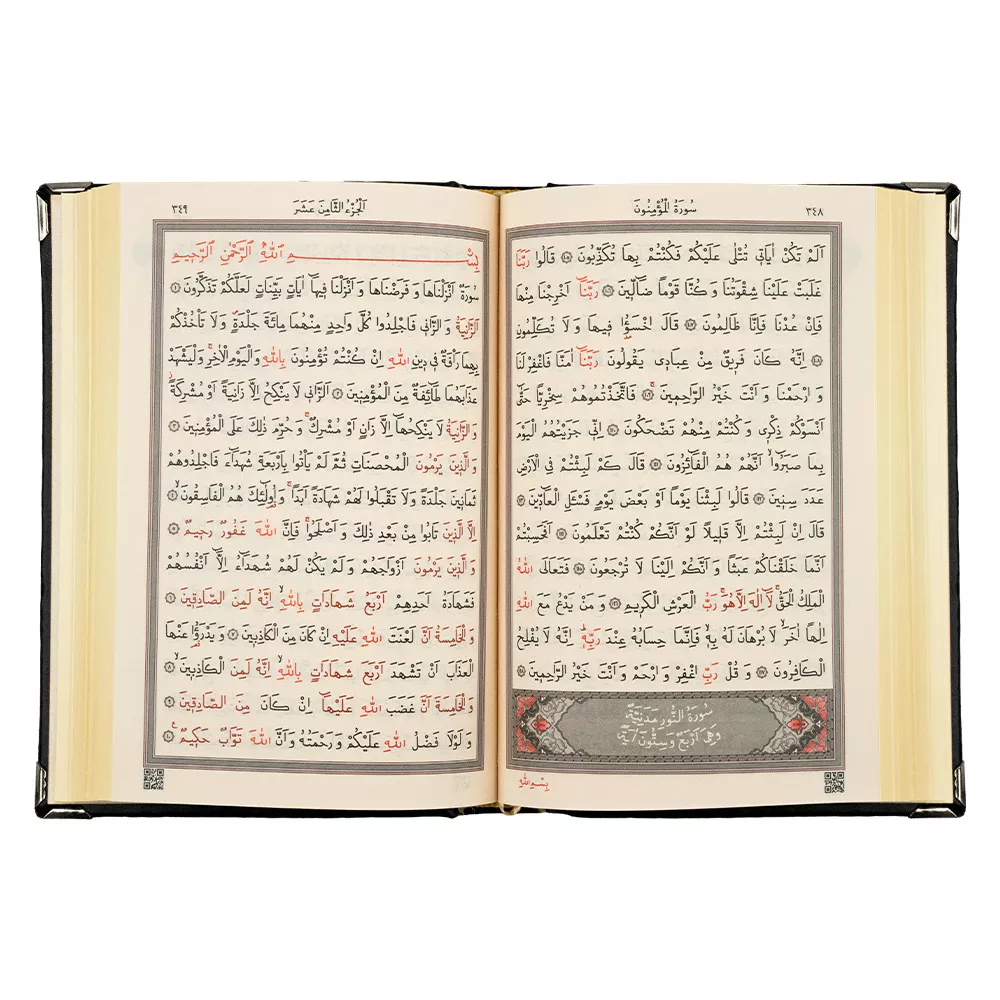 ٣٤٨
سُورَةُ الْمُؤْمِنُونَ
اَلَمْ تَكُنْ اٰيَاتٖي تُتْلٰى عَلَيْكُمْ فَكُنْتُمْ بِهَا تُكَذِّبُونَ ﴿١٠٥﴾ قَالُوا رَبَّنَا
غَلَبَتْ عَلَيْنَا شِقْوَتُنَا وَ كُنَّا قَوْمًا ضَٓالّٖينَ ﴿١٠٦﴾ رَبَّنَٓا اَخْرِجْنَا مِنْهَا
فَاِنْ عُدْنَا فَاِنَّا ظَالِمُونَ ﴿١٠٧﴾ قَالَ اخْسَؤُا فٖيهَا وَ لَا تُكَلِّمُونِ
﴿١٠٨﴾ اِنَّهُ كَانَ فَرٖيقٌ مِنْ عِبَادٖي يَقُولُونَ رَبَّنَٓا اٰمَنَّا فَاغْفِرْ لَنَا
وَ ارْحَمْنَا وَ اَنْتَ خَيْرُ الرَّاحِمٖينَ ﴿١٠٩﴾ فَاتَّخَذْتُمُوهُمْ سِخْرِيًّا حَتّٰٓى
اَنْسَوْكُمْ ذِكْرٖي وَ كُنْتُمْ مِنْهُمْ تَضْحَكُونَ ﴿١١٠﴾ اِنّٖي جَزَيْتُهُمُ الْيَوْمَ
بِمَا صَبَرُٓوا اَنَّهُمْ هُمُ الْفَٓائِزُونَ ﴿١١١﴾ قَالَ كَمْ لَبِثْتُمْ فِي الْاَرْضِ
عَدَدَ سِنٖينَ ﴿١١٢﴾ قَالُوا لَبِثْنَا يَوْمًا اَوْ بَعْضَ يَوْمٍ فَسْـَٔلِ الْعَٓادّٖينَ ﴿١١٣﴾
قَالَ اِنْ لَبِثْتُمْ اِلَّا قَلٖيلًا لَوْ اَنَّكُمْ كُنْتُمْ تَعْلَمُونَ ﴿١١٤﴾ اَفَحَسِبْتُمْ
اَنَّمَا خَلَقْنَاكُمْ عَبَثًا وَ اَنَّكُمْ اِلَيْنَا لَا تُرْجَعُونَ ﴿١١٥﴾ فَتَعَالَى اللّٰهُ
الْمَلِكُ الْحَقُّ لَٓا اِلٰهَ اِلَّا هُوَ رَبُّ الْعَرْشِ الْكَرٖيمِ ﴿١١٦﴾ وَ مَنْ يَدْعُ مَعَ اللّٰهِ
اِلٰهًا اٰخَرَ لَا بُرْهَانَ لَهُ بِهٖ فَاِنَّمَا حِسَابُهُ عِنْدَ رَبِّهٖ اِنَّهُ لَا يُفْلِحُ
الْكَافِرُونَ ﴿١١٧﴾ وَ قُلْ رَبِّ اغْفِرْ وَ ارْحَمْ وَ اَنْتَ خَيْرُ الرَّاحِمٖينَ ﴿١١٨﴾
سُورَةُ النُّورِ مَدَنِيَّةٌ
وَهِيَ اَرْبَعٌ وَ سِتُّونَ اٰيَةً
بِسْمِ اللّٰهِ
اَلْجُزْءُ الثَّامِنَ عَشَرَ
٣٤٩
بِسْمِ اللّٰهِ الرَّحْمٰنِ الرَّحٖيمِ
سُورَةٌ اَنْزَلْنَاهَا وَ فَرَضْنَاهَا وَ اَنْزَلْنَا فٖيهَٓا اٰيَاتٍ بَيِّنَاتٍ لَعَلَّكُمْ تَذَكَّرُونَ ﴿١﴾
اَلزَّانِيَةُ وَ الزَّانٖي فَاجْلِدُوا كُلَّ وَاحِدٍ مِنْهُمَا مِائَةَ جَلْدَةٍ وَ لَا تَأْخُذْكُمْ
بِهِمَا رَأْفَةٌ فٖي دٖينِ اللّٰهِ اِنْ كُنْتُمْ تُؤْمِنُونَ بِاللّٰهِ وَ الْيَوْمِ الْاٰخِرِ وَ لْيَشْهَدْ
عَذَابَهُمَا طَٓائِفَةٌ مِنَ الْمُؤْمِنٖينَ ﴿٢﴾ اَلزَّانٖي لَا يَنْكِحُ اِلَّا زَانِيَةً اَوْ مُشْرِكَةً
وَ الزَّانِيَةُ لَا يَنْكِحُهَٓا اِلَّا زَانٍ اَوْ مُشْرِكٌ وَ حُرِّمَ ذٰلِكَ عَلَى الْمُؤْمِنٖينَ ﴿٣﴾
وَ الَّذٖينَ يَرْمُونَ الْمُحْصَنَاتِ ثُمَّ لَمْ يَأْتُوا بِاَرْبَعَةِ شُهَدَٓاءَ فَاجْلِدُوهُمْ
ثَمَانٖينَ جَلْدَةً وَ لَا تَقْبَلُوا لَهُمْ شَهَادَةً اَبَدًا وَ اُولٰٓئِكَ هُمُ الْفَاسِقُونَ ﴿٤﴾
اِلَّا الَّذٖينَ تَابُوا مِنْ بَعْدِ ذٰلِكَ وَ اَصْلَحُوا فَاِنَّ اللّٰهَ غَفُورٌ رَحٖيمٌ ﴿٥﴾
وَ الَّذٖينَ يَرْمُونَ اَزْوَاجَهُمْ وَ لَمْ يَكُنْ لَهُمْ شُهَدَٓاءُ اِلَّٓا اَنْفُسُهُمْ
فَشَهَادَةُ اَحَدِهِمْ اَرْبَعُ شَهَادَاتٍ بِاللّٰهِ اِنَّهُ لَمِنَ الصَّادِقٖينَ ﴿٦﴾
وَ الْخَامِسَةُ اَنَّ لَعْنَتَ اللّٰهِ عَلَيْهِ اِنْ كَانَ مِنَ الْكَاذِبٖينَ ﴿٧﴾ وَ يَدْرَؤُا عَنْهَا
الْعَذَابَ اَنْ تَشْهَدَ اَرْبَعَ شَهَادَاتٍ بِاللّٰهِ اِنَّهُ لَمِنَ الْكَاذِبٖينَ ﴿٨﴾
وَ الْخَامِسَةَ اَنَّ غَضَبَ اللّٰهِ عَلَيْهَٓا اِنْ كَانَ مِنَ الصَّادِقٖينَ ﴿٩﴾
وَ لَوْلَا فَضْلُ اللّٰهِ عَلَيْكُمْ وَ رَحْمَتُهُ وَ اَنَّ اللّٰهَ تَوَّابٌ حَكٖيمٌ ﴿١٠﴾